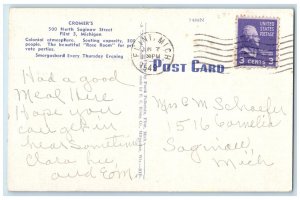 CROMER'S
500 North Saginaw Street
Flint 3, Michigan
Colonial atmosphere. Seating capacity, 300
people. The beautiful "Rose Room" for pri-
vate parties.
Smorgasbord Every Thursday Evening
Had a good
Meal Here
Hope you
can get in
hear Sometime
Clara Lu,
and Eom
FLINT, MICH
7
PM
194
POST CARD
3 CENTS 3
Mrs C M Schaefer
1516 Cornelia
Saginaw
Mich